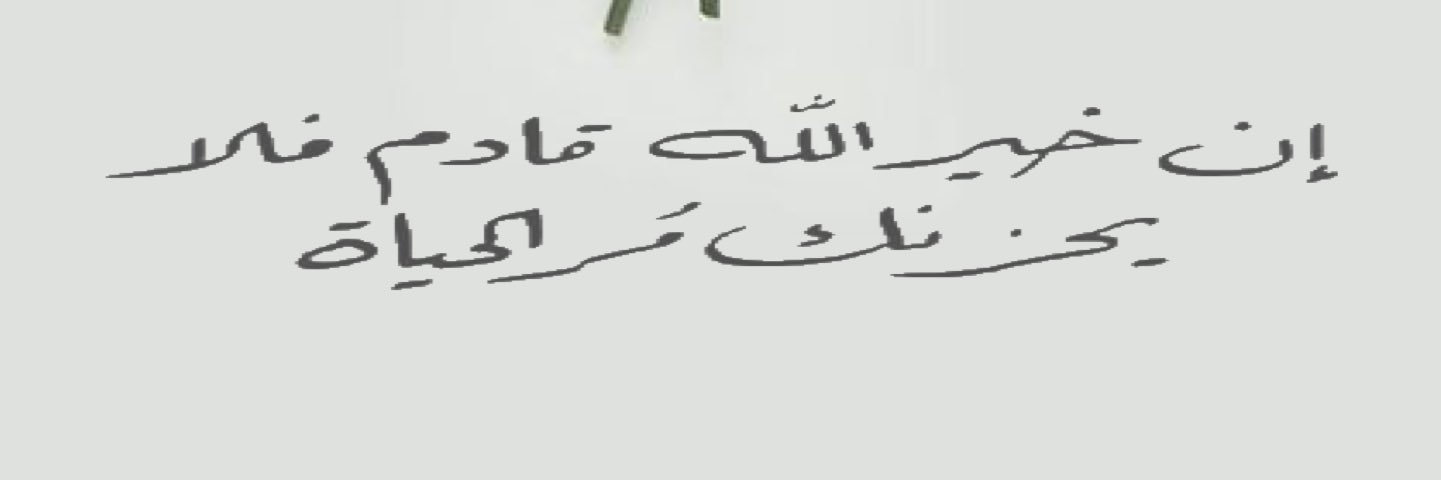 إن خير اللّه قادم فلا
يحزنك مُر الحياة